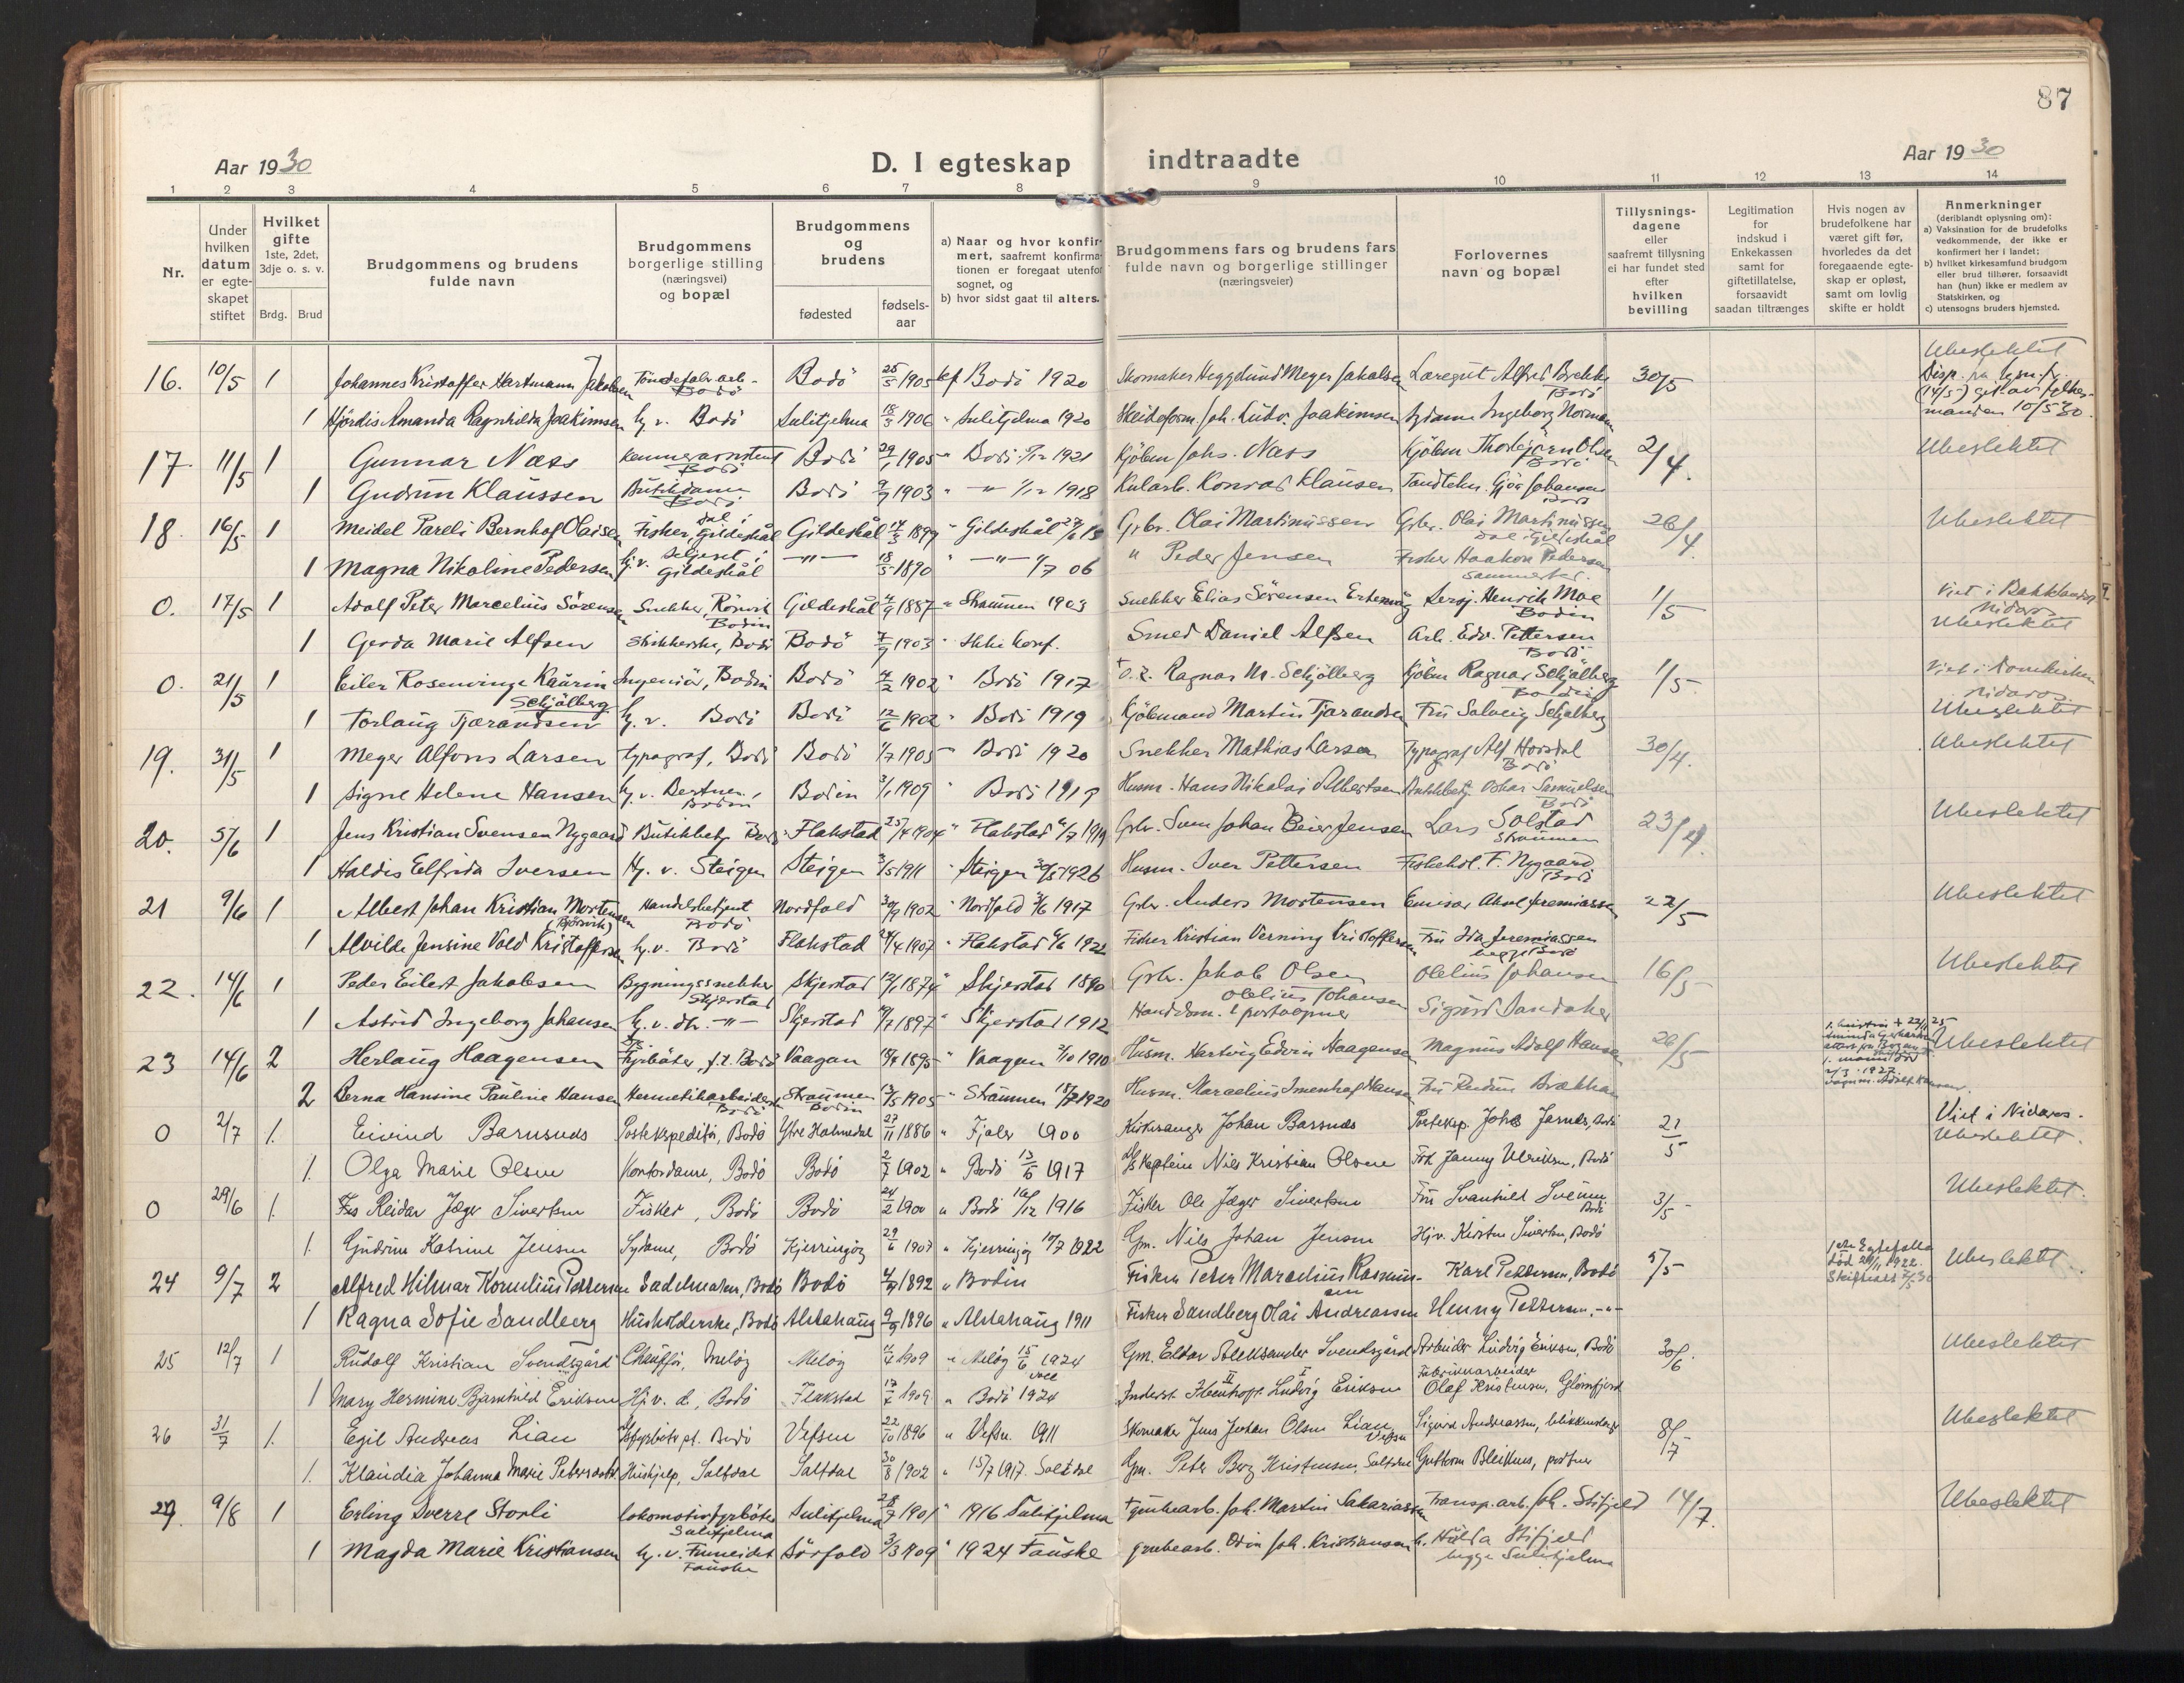 87
Aar 1930
D. I egteskap indtraadte
Aar 1930
1 2 3 4 5 6 7 8 9 10 11 12 13 14
Nr.
Under hvilken datum er egteskapet stiftet
Hvilket gifte 1ste, 2det, 3dje o. s. v.
Brdg. Brud
Brudgommens og brudens fulde navn
Brudgommens borgerlige stilling (næringsvei) og bopæl
Brudgommens og brudens
fødested
fødsels-aar
a) Naar og hvor konfirmert, saafremt konfirmationen er foregaat utenfor sognet, og
b) hvor sidst gaat til alters.
Brudgommens fars og brudens fars fulde navn og borgerlige stillinger (næringsveier)
Forlovernes navn og bopæl
Tillysningsdagene eller saafremt tillysning ei har fundet sted efter hvilken bevilling
Legitimation for indskud i Enkekassen samt for giftetillatelse, forsaavidt saadan tiltrænges
Hvis nogen av brudefolkene har været gift før, hvorledes da det foregaaende egteskap er opløst, samt om lovlig skifte er holdt
Anmerkninger (deriblandt oplysning om):
a) Vaksination for de brudefolks vedkommende, der ikke er konfirmert her i landet;
b) hvilket kirkesamfund brudgom eller brud tilhører, forsaavidt han (hun) ikke er medlem av Statskirken, og
c) utensogns bruders hjemsted.
16. 10/5 1 Johannes Kristoffer Hartmann Jakobsen Tøndefabr.arb. Bodö Bodö 25/5 1905 kf Bodö 1920 Skomaker Heggelund Meyer Jakobsen Læregut Alfred Brekke Bodö 30/5 Ubeslektet
1 Hjördis Amanda Ragnhilda Joakimsen hj. v. Bodö Sulitjelma 18/3 1906 " Sulitjelma 1920 Skeideform. Joh. Ludv. Joakimsen Sydame Ingeborg Norman
17. 11/5 1 Gunnar Næss Kemnerassistent Bodö Bodö 29/1 1905 " Bodö 1921 Kjöbm Johs. Næss Kjöbm Thorbjörn Olsen Bodö 2/4. Ubeslektet
1 Gudrun Klaussen Butikdame Bodö Bodö 9/9 1903 " -"- 1918 Kularb. Konrad Klausen Tandtekn. Gjör Johansen Bodö
18. 16/5 1 Meidel Pareli Bernhof Olaisen Fisker, Gildeskål Gildeskål 1899 " Gildeskål Grbr. Olai Martinussen Grbr. Olai Martinussen Sal i Gildeskål 26/4. Ubeslektet
1 Magna Nikoline Pedersen hj. v. Gildeskål -"- 18/5 1890 " -"- 06 " Peder Jensen Fisker Haakon Pedersen sammested.
0. 17/5 1 Adolf Peter Marcelius Sörensen Snekker, Rönvik Bodin Gildeskål 1887 " Straumen 1903 Snekker Elias Sörensen Sersj. Henrik Moe Bodin 1/5 Viet i Bakklandet Nidaros Ubeslektet
1 Gerda Marie Alfsen Strikkerske, Bodö Bodö 1903 " Ikke konf. Smed Daniel Alfsen Arb. Edv. Pettersen Bodö
0. 21/5 1 Eiler Rosenvinge Kaurin Schjölberg Ingeniör, Bodin Bodö 1902 " Bodö 1917 Ragnar M. Schjölberg Kjöbm Ragnar Schjölberg Bodin 1/5. Viet i Domkirken Nidaros Ubeslektet
1 Torlaug Tjærandsen hj. v. Bodö Bodö 12/6 1902 " Bodö 1919 Kjöbmand Martin Tjærandsen Fru Solveig Schjölberg
19. 31/5 1 Meyer Alfons Larsen typograf, Bodö Bodö 1/7 1905 " Bodö 1920 Snekker Mathias Larsen Typograf Alf Horsdal Bodö 30/4. Ubeslektet
1 Signe Helene Hansen hj. v. Bertnes, Bodin Bodin 3/1 1909 " Bodö 1919 Husm. Hans Nikolai Albertsen Butikbetj. Oskar Samuelsen Bodö
20. 5/6 1 Jens Kristian Svensen Nygaard Butikkbetj. Bodö Flakstad 25/4 1904 " Flakstad 1919 Grbr. Sven Johan Beier Jensen Lars Solstad Straumen 23/4. Ubeslektet
1 Haldis Elfrida Iversen Hj. v. Steigen Steigen 3/5 1911 " Steigen 1926 Husm. Iver Pettersen Fiskehdl. F. Nygaard Bodö
21 9/6 1 Albert Johan Kristian Mortensen (Björvik) Handelsbetjent Bodö Nordfold 30/9 1902 " Nordfold 1917 Grbr. Anders Mortensen Emissær Aksel Jeremiassen 22/5 Ubeslektet
1 Alvilde Jensine Vold Kristoffersen hj. v. Bodö Flakstad 24/4 1907 " Flakstad 1922 Fisker Kristian Verning Kristoffersen Fru Ida Jeremiassen begge Bodö
22. 14/6 1 Peder Eilert Jakobsen Bygningssnekker Skjerstad Skjerstad 1874 " Skjerstad 1890 Grbr. Jakob Olsen Olelius Johansen 16/5 Ubeslektet
1 Astrid Ingeborg Johansen hj. v. dtr. -"- Skjerstad 1897 " Skjerstad 1912 Handelsm. & postaapner Olelius Johansen Sigurd Sandaker
23 14/6 2 Herlaug Haagensen Fyrböter, f.t. Bodö Vaagan 1895 " Vaagan 1910 Husm. Hartvig Edvin Haagensen Magnus Adolf Hansen 26/5 Ubeslektet
2 Berna Hansine Pauline Hansen Hermetikarbeiderske Bodö Straumen Bodin 1905 " Straumen 1920 Husm. Marcelius Imenhof Hansen Fru Brækkan
0 2/7 1. Eivind Barsnes Postekspeditör, Bodö Ytre Holmedal 27/11 1886 " Fjaler 1900 Kirkesanger Johan Barsnes Posteksp. Johs Jarnes, Bodö 21/5 Viet i Nidaros. Ubeslektet.
1. Olga Marie Olsen Kontordame, Bodö Bodö 2/7 1902 " Bodö 13/5 1917 Kaptein Nils Kristian Olsen Frk Janny Ulriksen, Bodö
0 29/6 1. Reidar Jæger Sivertsen Fisker, Bodö Bodö 24/2 1900 " Bodö 1916 Fisker Ole Jæger Sivertsen Fru Svanhild Bodö 3/5 - Ubeslektet.
1. Gudrun Katrine Jensen Sydame, Bodö Kjerringöy 29/6 1907 " Kjerringöy 1922 Gm. Nils Johan Jensen Hj.v. Kirsten Sivertsen, Bodö
24 9/7 2 Alfred Hilmar Kornelius Pettersen Sadelmaker, Bodö Bodö 1892 " Bodin Fisker Peter Marcelius Rasmussen Karl Pettersen, Bodö 5/5 Ubeslektet.
1 Ragna Sofie Sandberg Husholderske, Bodö Alstahaug 1896 " Alstahaug 1911 Fisker Sandberg Olai Andreassen Henny Pettersen, -"-
25 12/7 1 Rudolf Kristian Svendsgård Chaufför, Melöy Melöy 1909 " Melöy 15/6 1924 Gm. Eldor Aleksander Svendsgård Arbeider Ludvig Eriksen, Bodö 30/6. Ubeslektet
1 Mary Hermine Bjarnhild Eriksen Hj. v. d., Bodö Flakstad 1909 " Bodö 1924 Inderst. Ludvig Eriksen Fabrikkarbeider Olaf Kristensen, Glomfjord
26 31/7 1. Egil Andreas Lian Bodö Vefsen 22/10 1896 " Vefsn. 1911 Skomaker Jens Johan Olsen Lian Vefsn Sigurd Andreassen, blikkenslager 8/7 Ubeslektet
1. Klaudia Johanna Marie Petersdatter Hushjelp, Saltdal Saltdal 30/8 1902 " 15/7 1917. Saltdal Gm. Peter Berg Kristensen, Saltdal Guttorm Bleiknes, portner
27. 9/8 1 Erling Sverre Storli Lokomotivfyrböter Sulitjelma Sulitjelma 1901 " 1916 Sulitjelma + grubearb. Joh. Martin Sakariassen Transp.arb. Joh. Stifjeld 14/7. Ubeslektet
1 Magda Marie Kristiansen hj. v. Finneidet Fauske Sörfold 3/3 1909 " 1924 Fauske grubearb. Odin Joh. Kristiansen fr. Hilda Stifjeld begge Sulitjelma